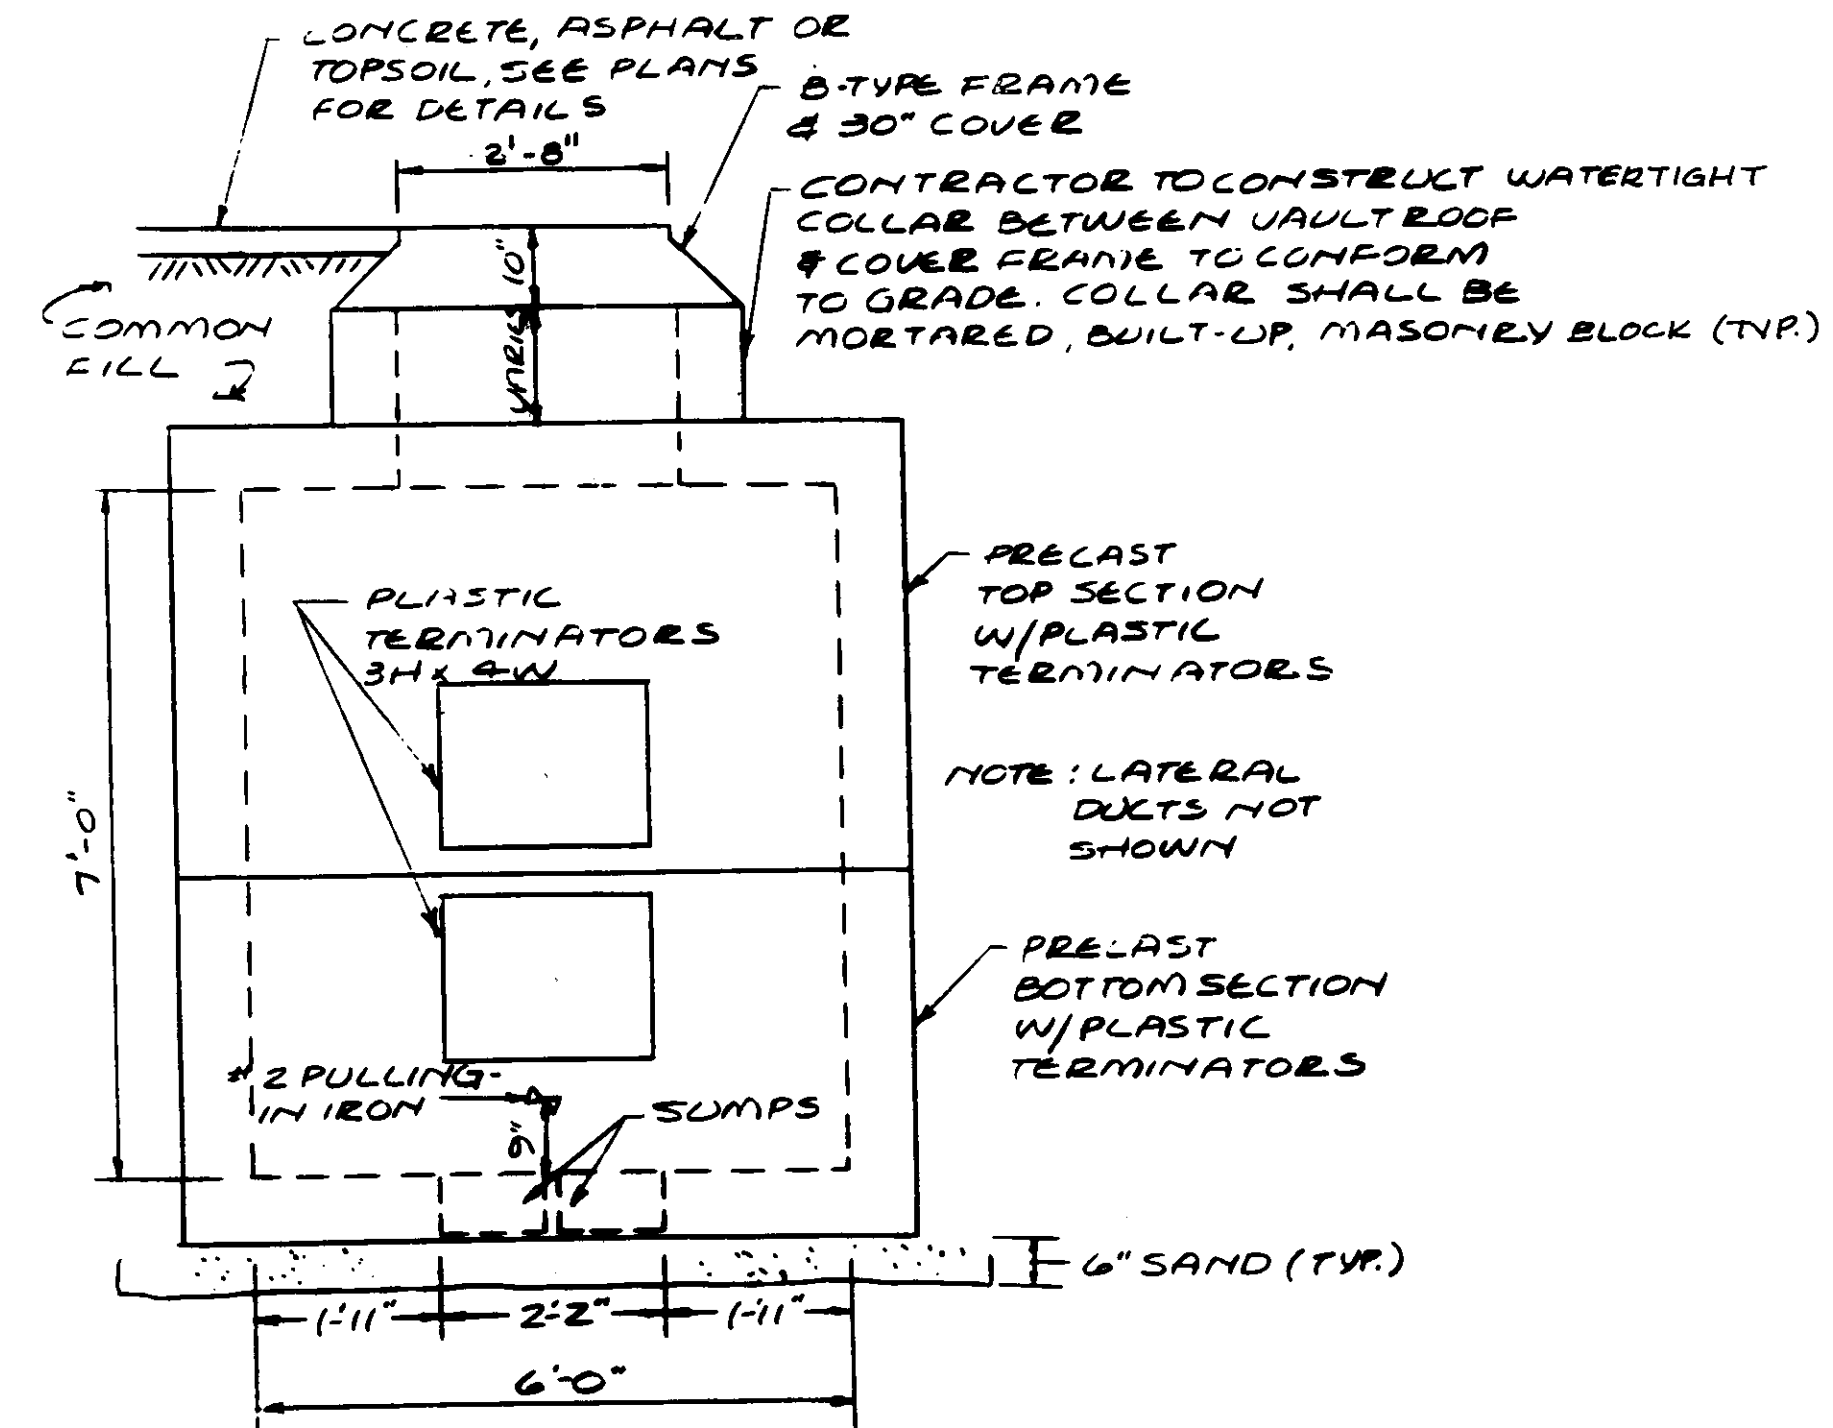 CONCRETE, ASPHALT OR
TOPSOIL, SEE PLANS
FOR DETAILS
B-TYPE FRAME
& 30" COVER
2'-8"
CONTRACTOR TO CONSTRUCT WATERTIGHT
COLLAR BETWEEN VAULT ROOF
& COVER FRAME TO CONFORM
TO GRADE. COLLAR SHALL BE
MORTARED, BUILT-UP, MASONRY BLOCK (TYP.)
10"
VARIES
COMMON
FILL
PRECAST
TOP SECTION
W/PLASTIC
TERMINATORS
PLASTIC
TERMINATORS
3H x 4W
NOTE: LATERAL
DUCTS NOT
SHOWN
7'-0"
PRECAST
BOTTOM SECTION
W/PLASTIC
TERMINATORS
#2 PULLING-
IN IRON
9"
SUMPS
6" SAND (TYP.)
1'-11"
2'-2"
1'-11"
6'-0"